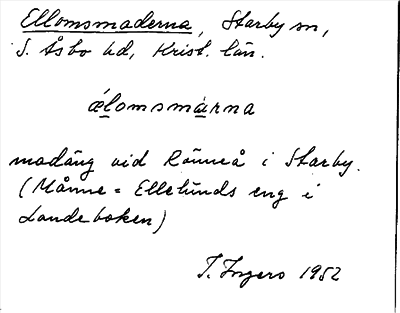 Ellomsmaderna, Starby sn,
S. Åsbo hd, Krist. län.
ǽlomsmàrna
madäng vid Rönneå i Starby.
(Månne = Ellelunds eng i
Landeboken)
T. Ingers 1952